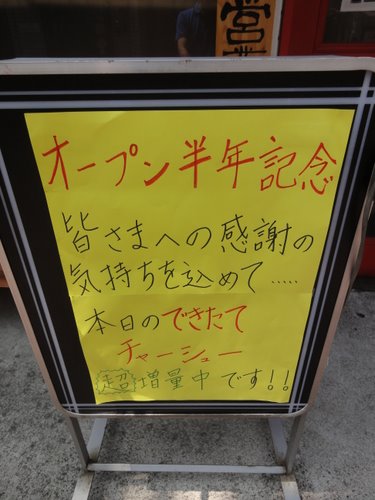 営
オープン半年記念
皆さまへの感謝の
気持ちを込めて.....
本日のできたて
チャーシュー
超増量中です!!